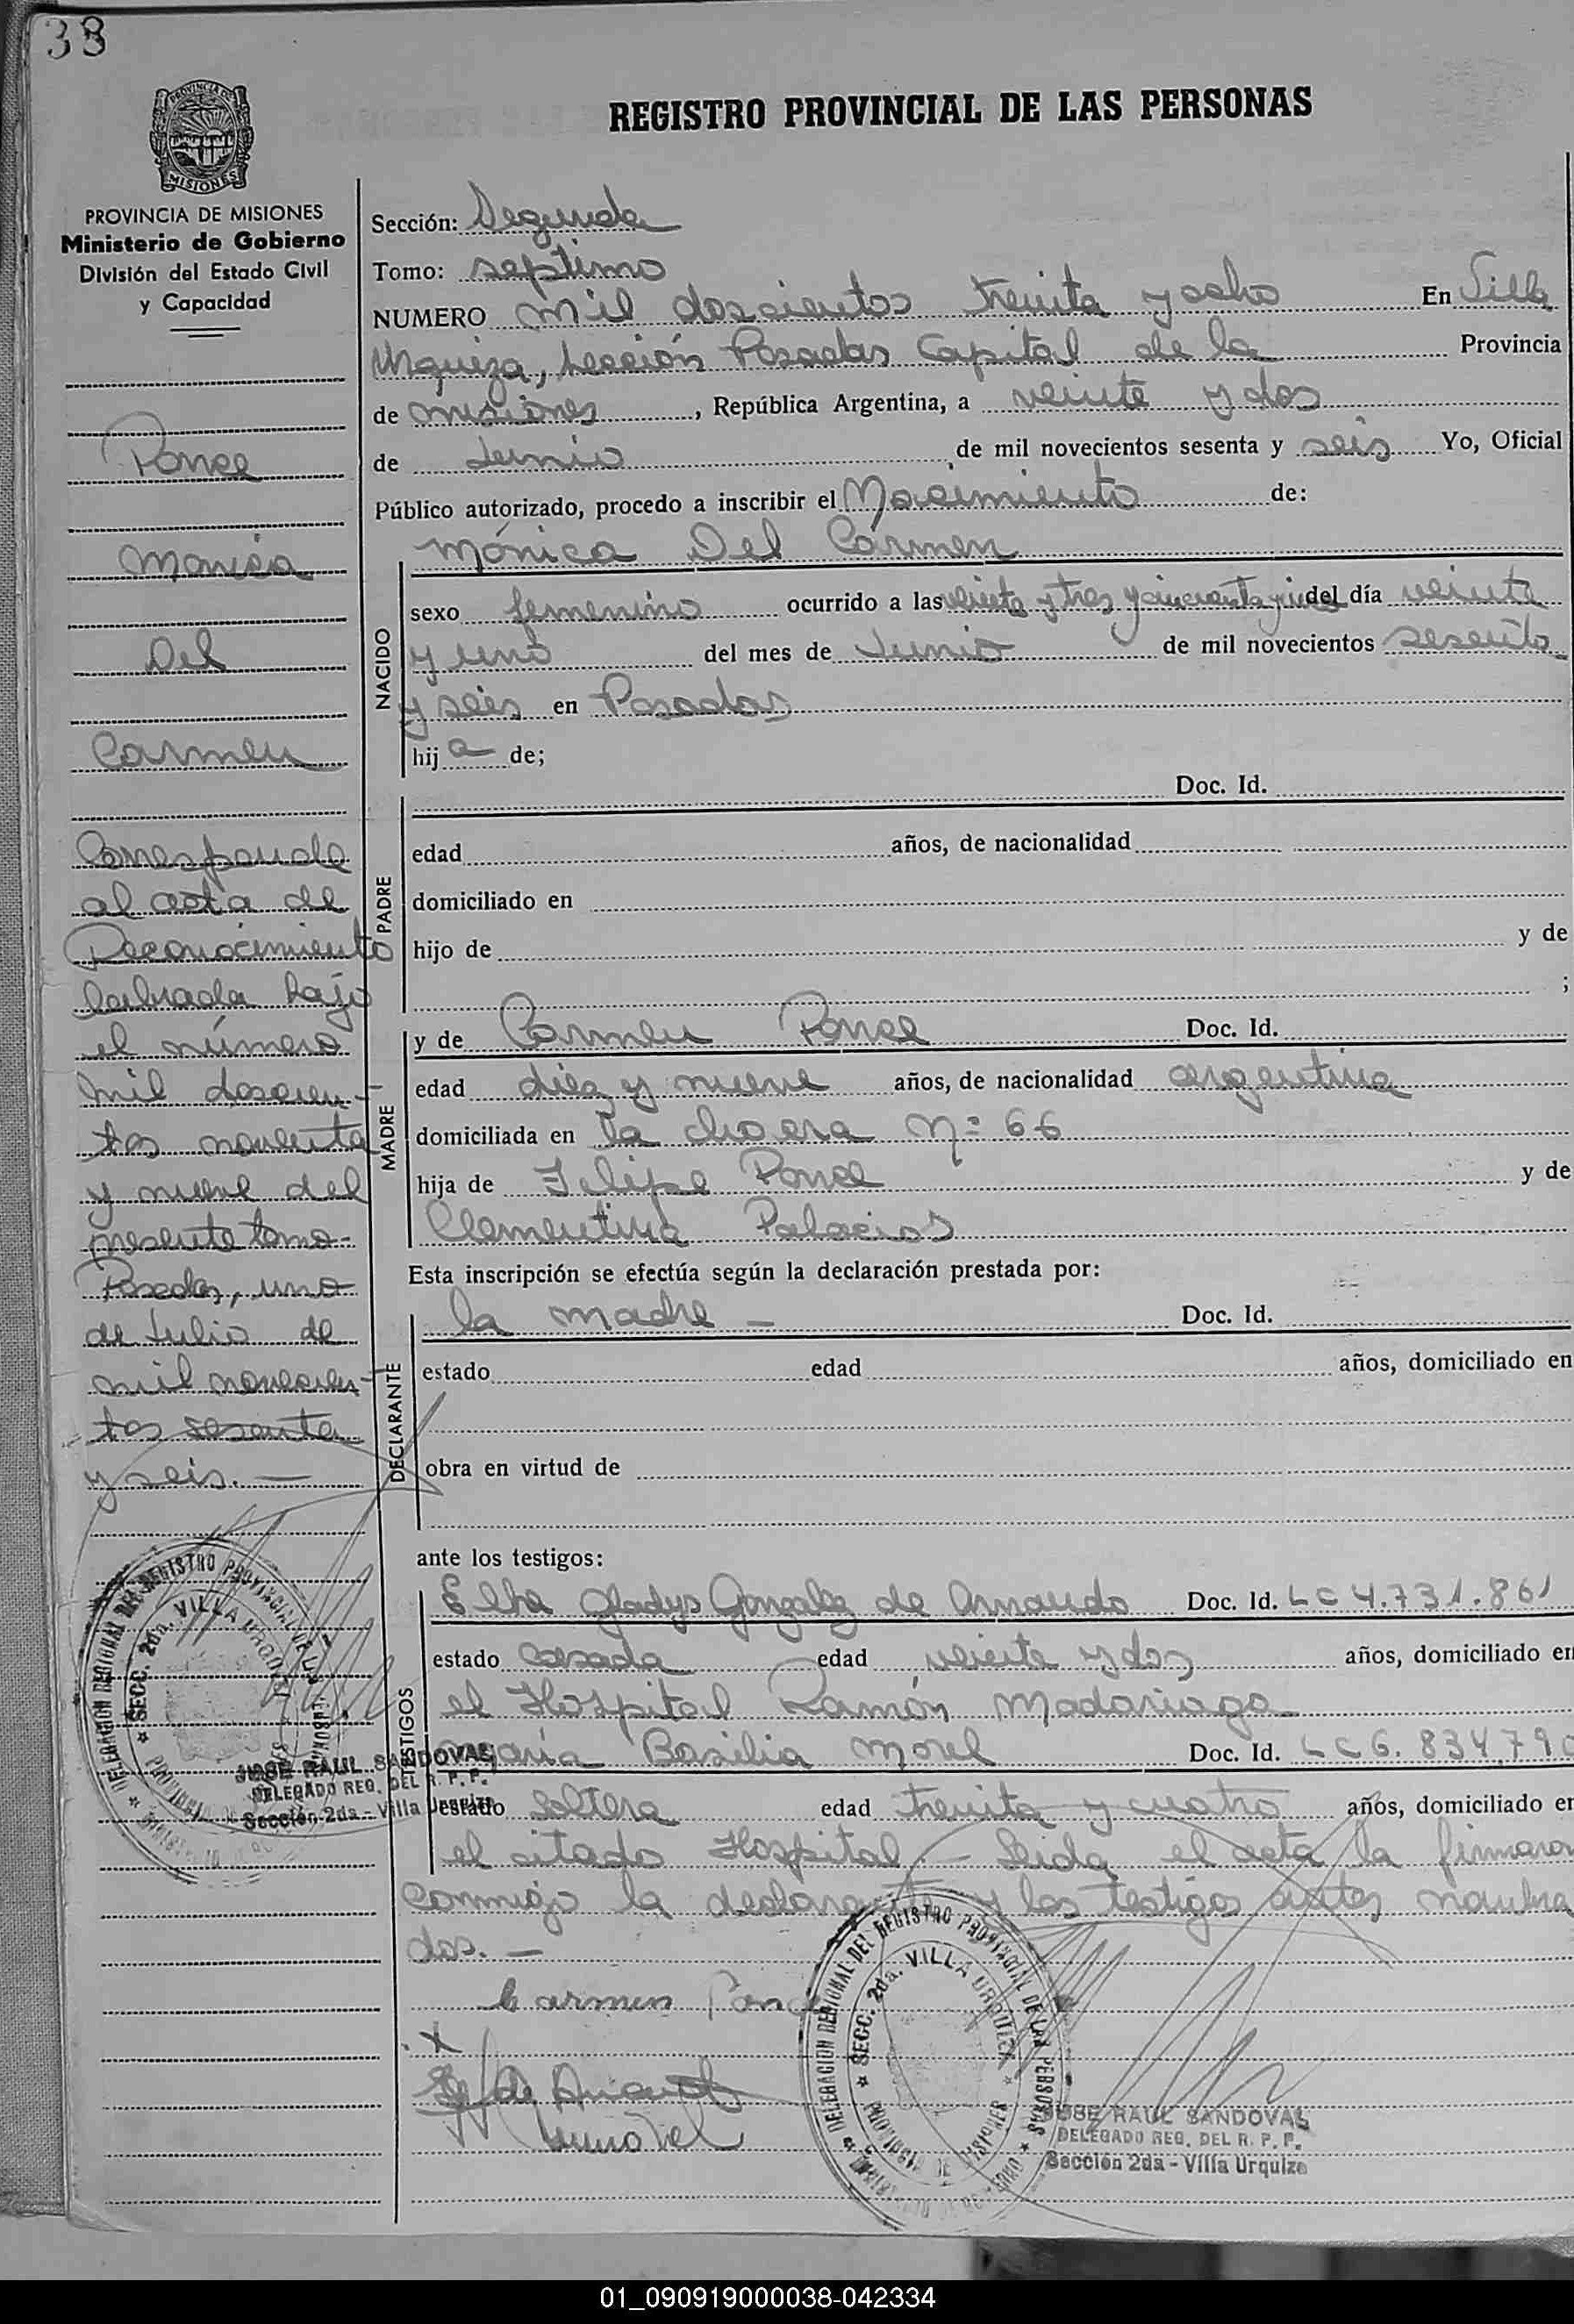 38
REGISTRO PROVINCIAL DE LAS PERSONAS
PROVINCIA DE
MISIONES
PROVINCIA DE MISIONES
Ministerio de Gobierno
División del Estado Civil
y Capacidad
Ponce
Monica
Del
Carmen
Corresponde
al acta de
Reconocimiento
labrada bajo
el número
mil doscien-
tos noventa
y nueve del
presente tomo-
Posadas, uno
de Julio de
mil novecien-
tos sesenta
y seis. —
Sección: Segunda
Tomo: septimo
NUMERO mil doscientos treinta y ocho En Villa
Urquiza, Sección Posadas Capital de la Provincia
de misiones, República Argentina, a veinte y dos
de Junio de mil novecientos sesenta y seis Yo, Oficial
Público autorizado, procedo a inscribir el Nacimiento de:
Mónica Del Carmen
NACIDO
sexo femenino ocurrido a las veinte y tres y cincuenta y del día veinte
y uno del mes de Junio de mil novecientos sesenta
y seis en Posadas
hija de;
Doc. Id.
PADRE
edad años, de nacionalidad
domiciliado en
hijo de y de
;
MADRE
y de Carmen Ponce Doc. Id.
edad diez y nueve años, de nacionalidad argentina
domiciliada en la chacra Nº 66
hija de Felipe Ponce y de
Clementina Palacios
Esta inscripción se efectúa según la declaración prestada por:
DECLARANTE
la madre — Doc. Id.
estado edad años, domiciliado en
obra en virtud de
ante los testigos:
TESTIGOS
Elba Gladys Gonzalez de Arnaudo Doc. Id. LC 4.731.861
estado casada edad veinte y dos años, domiciliado en
el Hospital Ramón Madariaga
María Basilia Morel Doc. Id. LC 6.834.790
estado soltera edad treinta y cuatro años, domiciliado en
el citado Hospital — Leida el acta la firmaron
conmigo la declarante y los testigos antes nombra
dos. —
Carmen Ponce
x
DELEGACION REGIONAL DEL REGISTRO PROVINCIAL DE LAS PERSONAS
SECC. 2da. VILLA URQUIZA
PROVINCIA DE MISIONES
JOSE RAUL SANDOVAL
DELEGADO REG. DEL R. P. P.
Sección 2da - Villa Urquiza
DELEGACION REGIONAL DEL REGISTRO PROVINCIAL DE LAS PERSONAS
SECC. 2da. VILLA URQUIZA
PROVINCIA DE MISIONES
JOSE RAUL SANDOVAL
DELEGADO REG. DEL R. P. P.
Sección 2da - Villa Urquiza
01_090919000038-042334